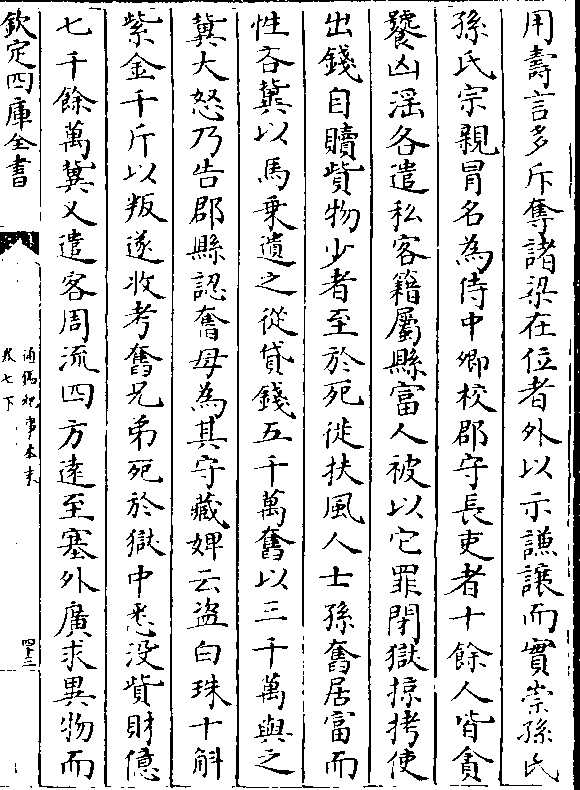 用壽言多斥奪諸梁在位者外以示謙讓而實崇孫氏
孫氏宗親冒名為侍中卿校郡守長吏者十餘人皆貪
饕凶淫各遣私客籍屬縣富人被以它罪閉獄掠拷使
出錢自贖貲物少者至於死徙扶風人士孫奮居富而
性吝冀以馬乗遺之從貸錢五千萬奮以三千萬與之
冀大怒乃告郡縣認奮母為其守藏婢云盗白珠十斛
紫金千斤以叛遂收考奮兄弟死於獄中悉没貲財億
七千餘萬冀又遣客周流四方逺至塞外廣求異物而
欽定四庫全書
通鑑紀事本末
卷七下
四十三